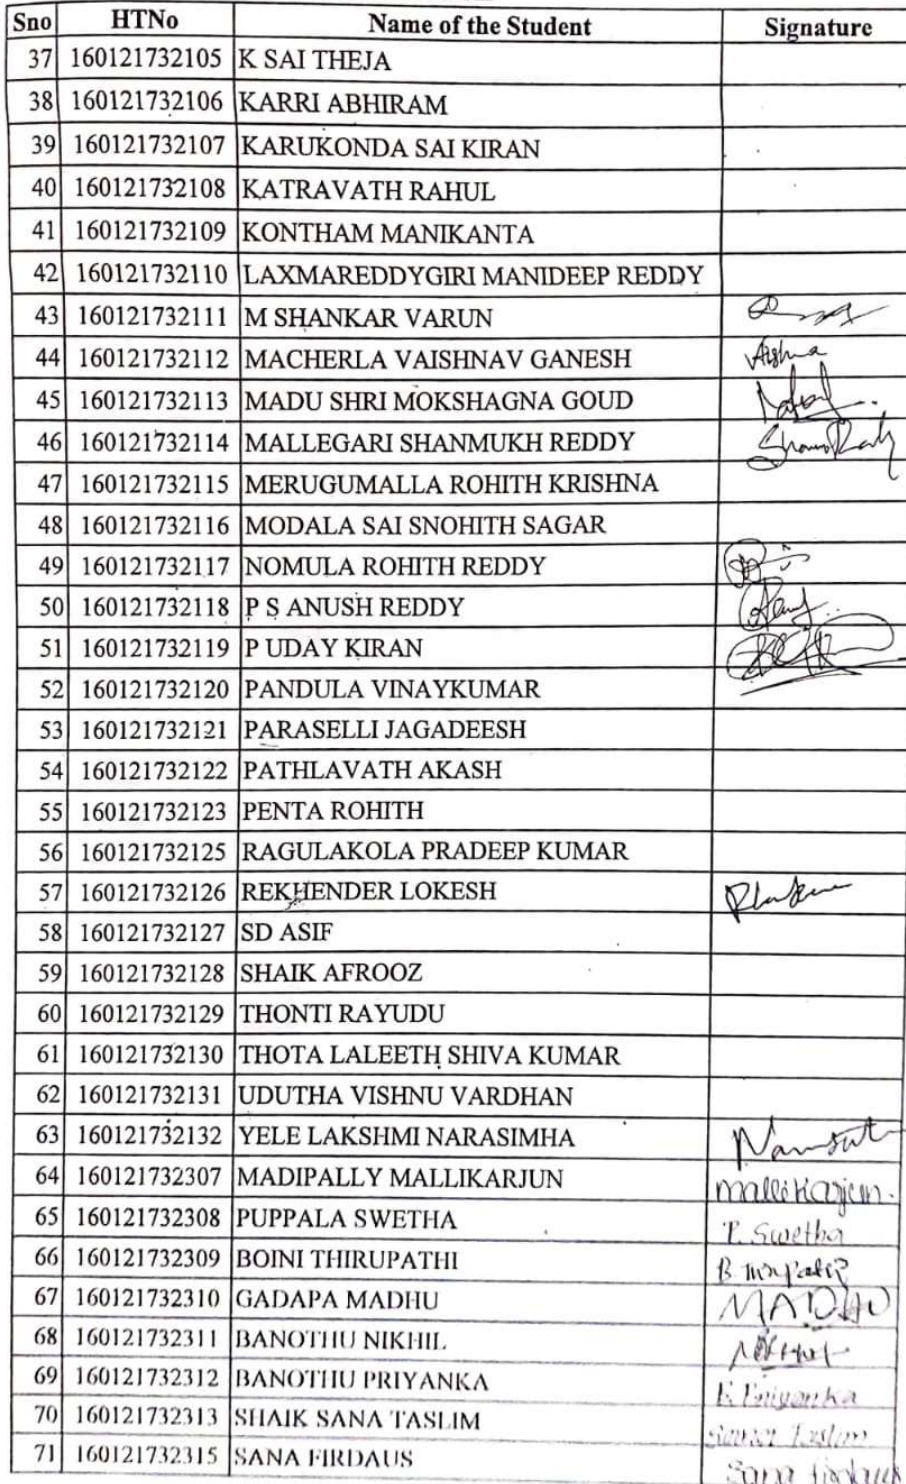 Sno HTNo Name of the Student Signature
37 160121732105 K SAI THEJA
38 160121732106 KARRI ABHIRAM
39 160121732107 KARUKONDA SAI KIRAN
40 160121732108 KATRAVATH RAHUL
41 160121732109 KONTHAM MANIKANTA
42 160121732110 LAXMAREDDYGIRI MANIDEEP REDDY
43 160121732111 M SHANKAR VARUN
44 160121732112 MACHERLA VAISHNAV GANESH
45 160121732113 MADU SHRI MOKSHAGNA GOUD
46 160121732114 MALLEGARI SHANMUKH REDDY
47 160121732115 MERUGUMALLA ROHITH KRISHNA
48 160121732116 MODALA SAI SNOHITH SAGAR
49 160121732117 NOMULA ROHITH REDDY
50 160121732118 P S ANUSH REDDY
51 160121732119 P UDAY KIRAN
52 160121732120 PANDULA VINAYKUMAR
53 160121732121 PARASELLI JAGADEESH
54 160121732122 PATHLAVATH AKASH
55 160121732123 PENTA ROHITH
56 160121732125 RAGULAKOLA PRADEEP KUMAR
57 160121732126 REKHENDER LOKESH
58 160121732127 SD ASIF
59 160121732128 SHAIK AFROOZ
60 160121732129 THONTI RAYUDU
61 160121732130 THOTA LALEETH SHIVA KUMAR
62 160121732131 UDUTHA VISHNU VARDHAN
63 160121732132 YELE LAKSHMI NARASIMHA
64 160121732307 MADIPALLY MALLIKARJUN Mallikarjun.
65 160121732308 PUPPALA SWETHA P. Swetha
66 160121732309 BOINI THIRUPATHI
67 160121732310 GADAPA MADHU MADHU
68 160121732311 BANOTHU NIKHIL
69 160121732312 BANOTHU PRIYANKA B. Priyanka
70 160121732313 SHAIK SANA TASLIM Sana Taslim
71 160121732315 SANA FIRDAUS Sana Firdaus